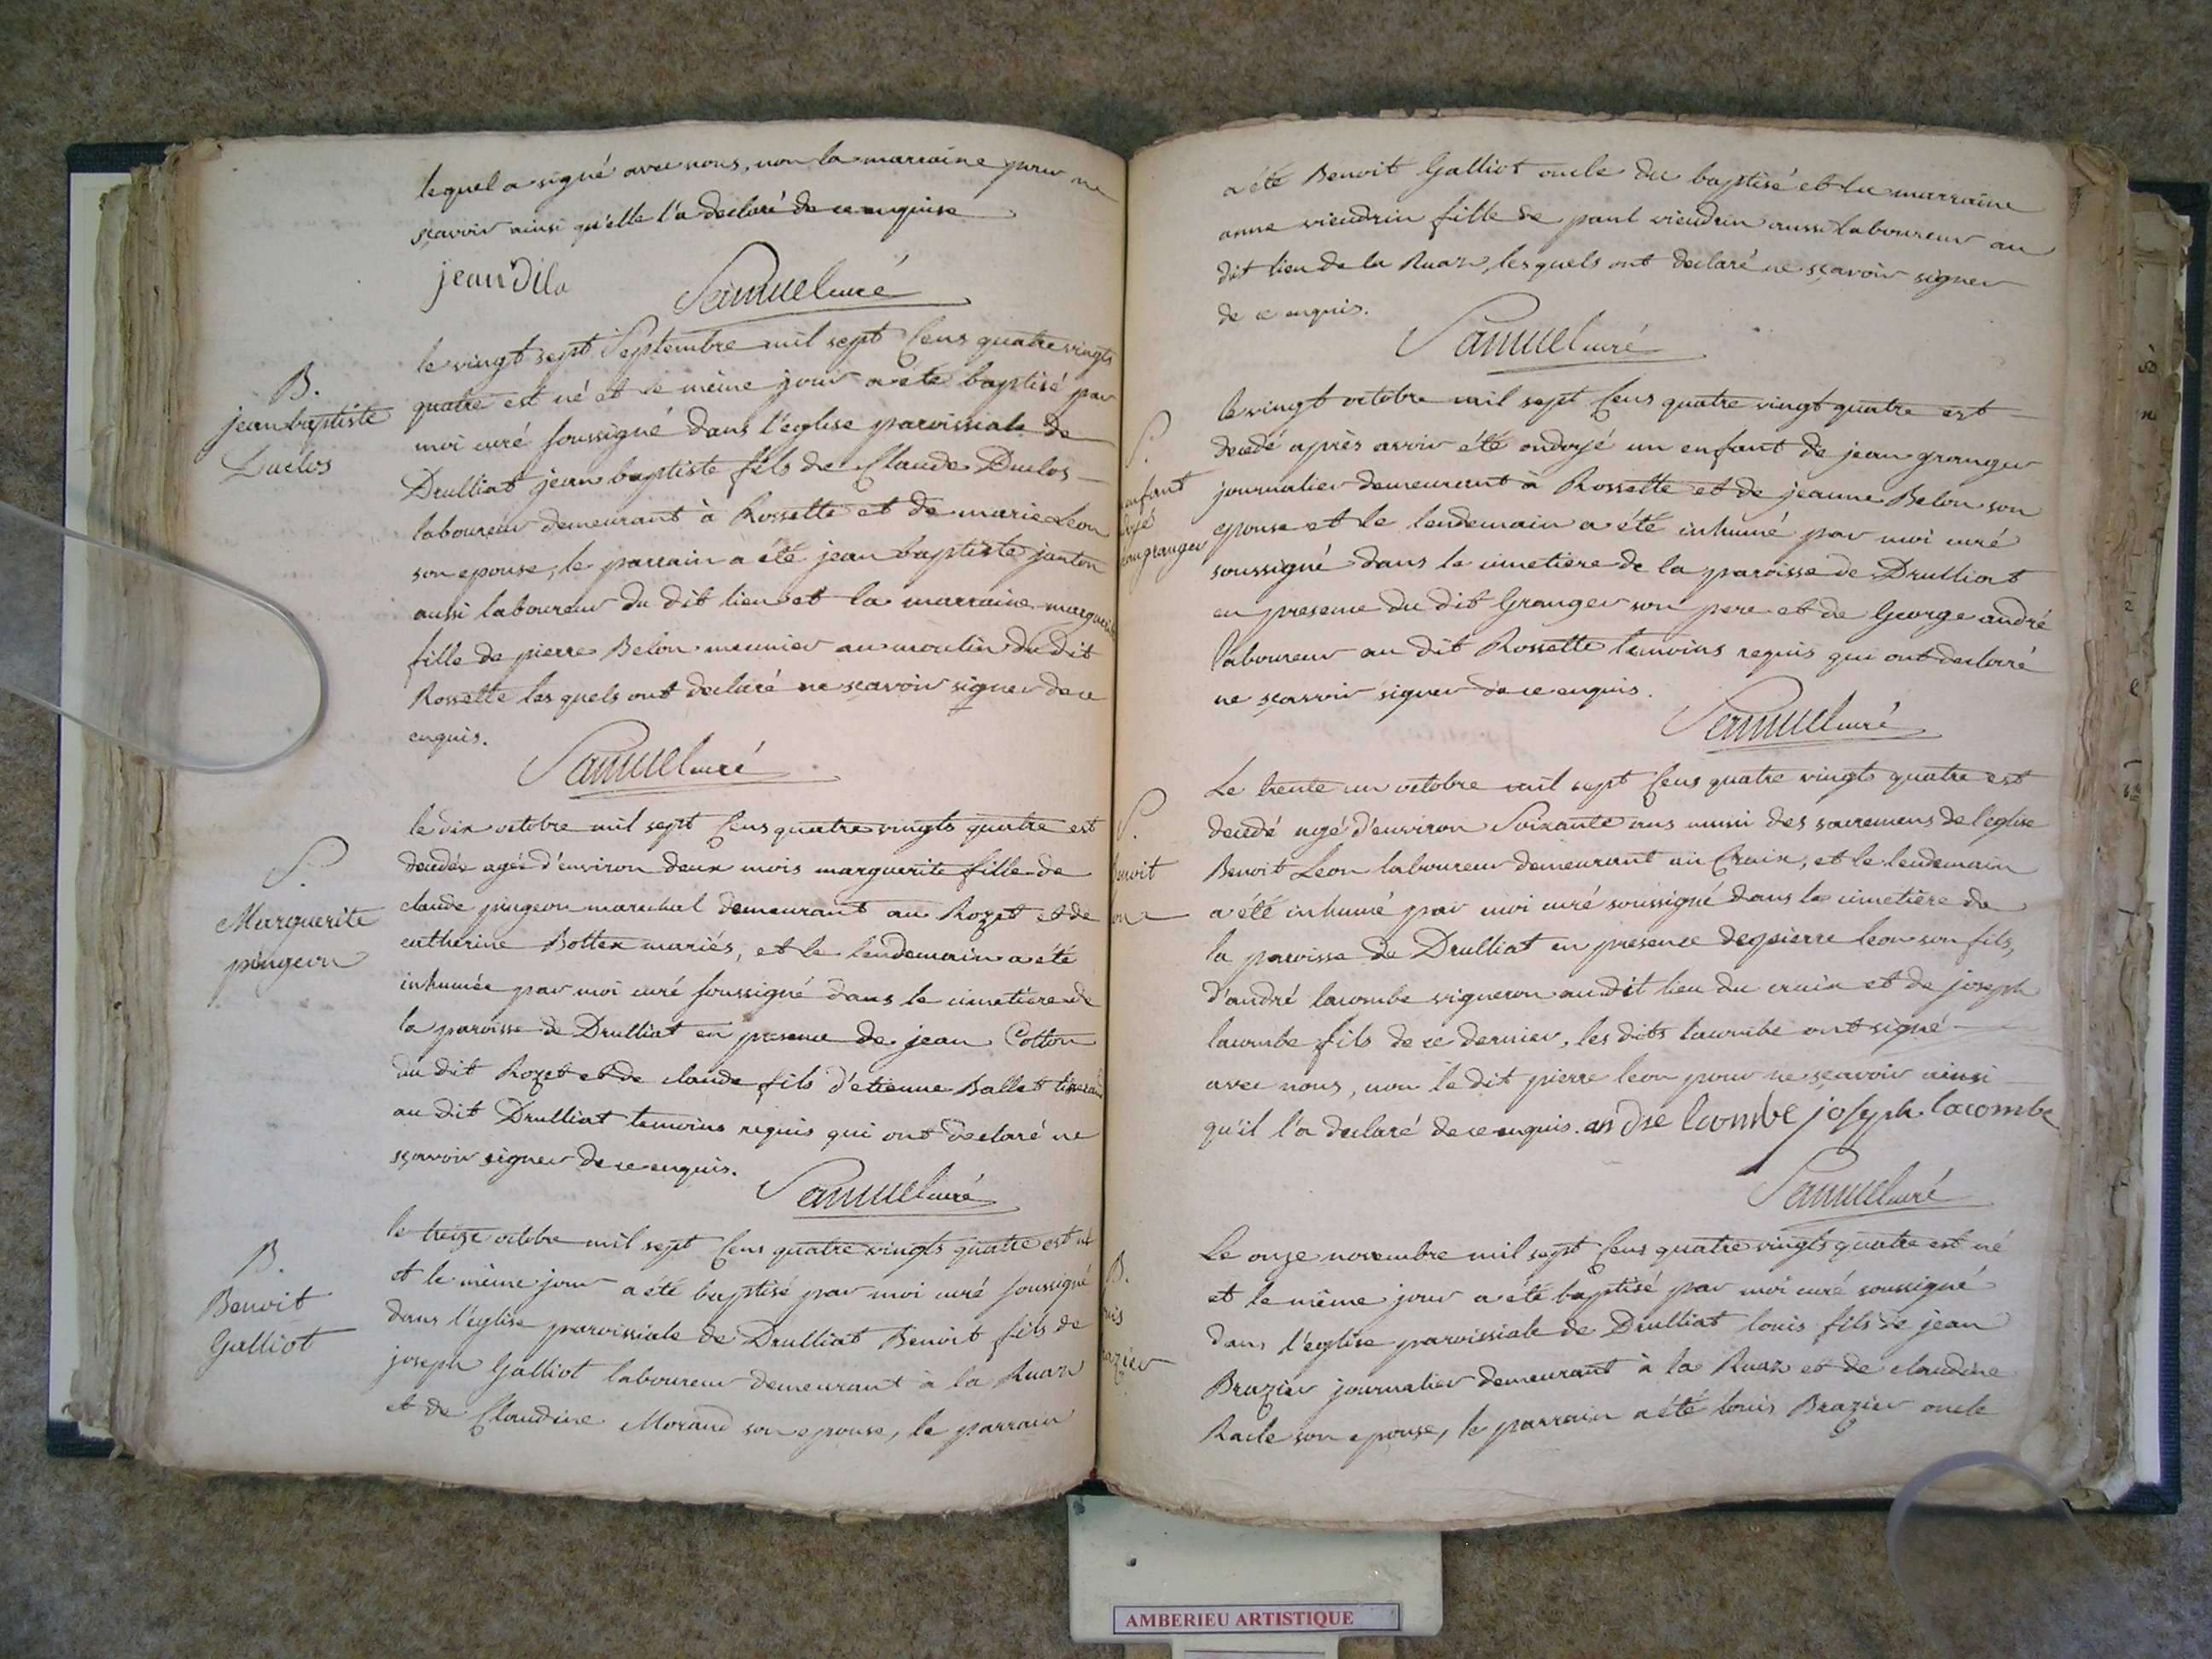 lequel a signé avec nous, non la marraine pour ne
sçavoir ainsi qu'elle l'a declaré de ce enquise
jean dila
Samuel curé
B.
jean baptiste
Duclos
le vingt sept Septembre mil sept Cens quatre vingts
quatre est né et le même jour a été baptisé par
moi curé soussigné dans l'eglise paroissiale de
Drulliat jean baptiste fils de Claude Duclos
laboureur demeurant à Rossette et de marie Leon
son epouse, le parrain a été jean baptiste janton
aussi laboureur du dit lieu et la marraine marguerite
fille de pierre Belon meunier au moulin du dit
Rossette lesquels ont declaré ne sçavoir signer de ce
enquis.
Samuel curé
S.
Marguerite
pingeon
le dix octobre mil sept Cens quatre vingts quatre est
decedée agée d'environ deux mois marguerite fille de
claude pingeon marechal demeurant au Rozet et de
catherine Bottex mariés, et le lendemain a été
inhumée par moi curé soussigné dans le cimetière de
la paroisse de Drulliat en presence de jean Cotton
du dit Rozet et de claude fils d'etienne Ballet tisserand
au dit Drulliat temoins requis qui ont declaré ne
sçavoir signer de ce enquis.
Samuel curé
B.
Benoit
Galliot
le treize octobre mil sept Cens quatre vingts quatre est né
et le même jour a été baptisé par moi curé soussigné
dans l'église paroissiale de Drulliat Benoit fils de
joseph Galliot laboureur demeurant à la Ruaz
et de Claudine Morand son epouse, le parrain
a été Benoit Galliot oncle du baptisé et la marraine
anne vieudrin fille de paul vieudrin aussi laboureur au
dit lieu de la Ruaz, lesquels ont declaré ne sçavoir signer
de ce enquis.
Samuel curé
S.
enfant
doyé
jean granger
le vingt octobre mil sept Cens quatre vingt quatre est
decedé après avoir été ondoyé un enfant de jean granger
journalier demeurant à Rossette et de jeanne Belon son
epouse et le lendemain a été inhumé par moi curé
soussigné dans le cimetière de la paroisse de Drulliat
en presence du dit Granger son pere et de George andré
laboureur au dit Rossette temoins requis qui ont declaré
ne sçavoir signer de ce enquis.
Samuel curé
S.
enoit
on
Le trente un octobre mil sept Cens quatre vingts quatre est
decedé agé d'environ Soixante ans muni des sacremens de l'eglise
Benoit Leon laboureur demeurant au Cruix, et le lendemain
a été inhumé par moi curé soussigné dans le cimetière de
la paroisse de Drulliat en presence de pierre leon son fils,
d'andré lacombe vigneron au dit lieu du cruix et de joseph
lacombe fils de ce dernier, les dits lacombe ont signé
avec nous, non le dit pierre leon pour ne sçavoir ainsi
qu'il l'a declaré de ce enquis. an dre lcombe joseph lacombe
Samuel curé
B.
uis
razier
Le onze novembre mil sept Cens quatre vingts quatre est né
et le même jour a été baptisé par moi curé soussigné
dans l'eglise paroissiale de Drulliat louis fils de jean
Brazier journalier demeurant à la Ruaz et de claudine
Racle son epouse, le parrain a été louis Brazier oncle
AMBERIEU ARTISTIQUE